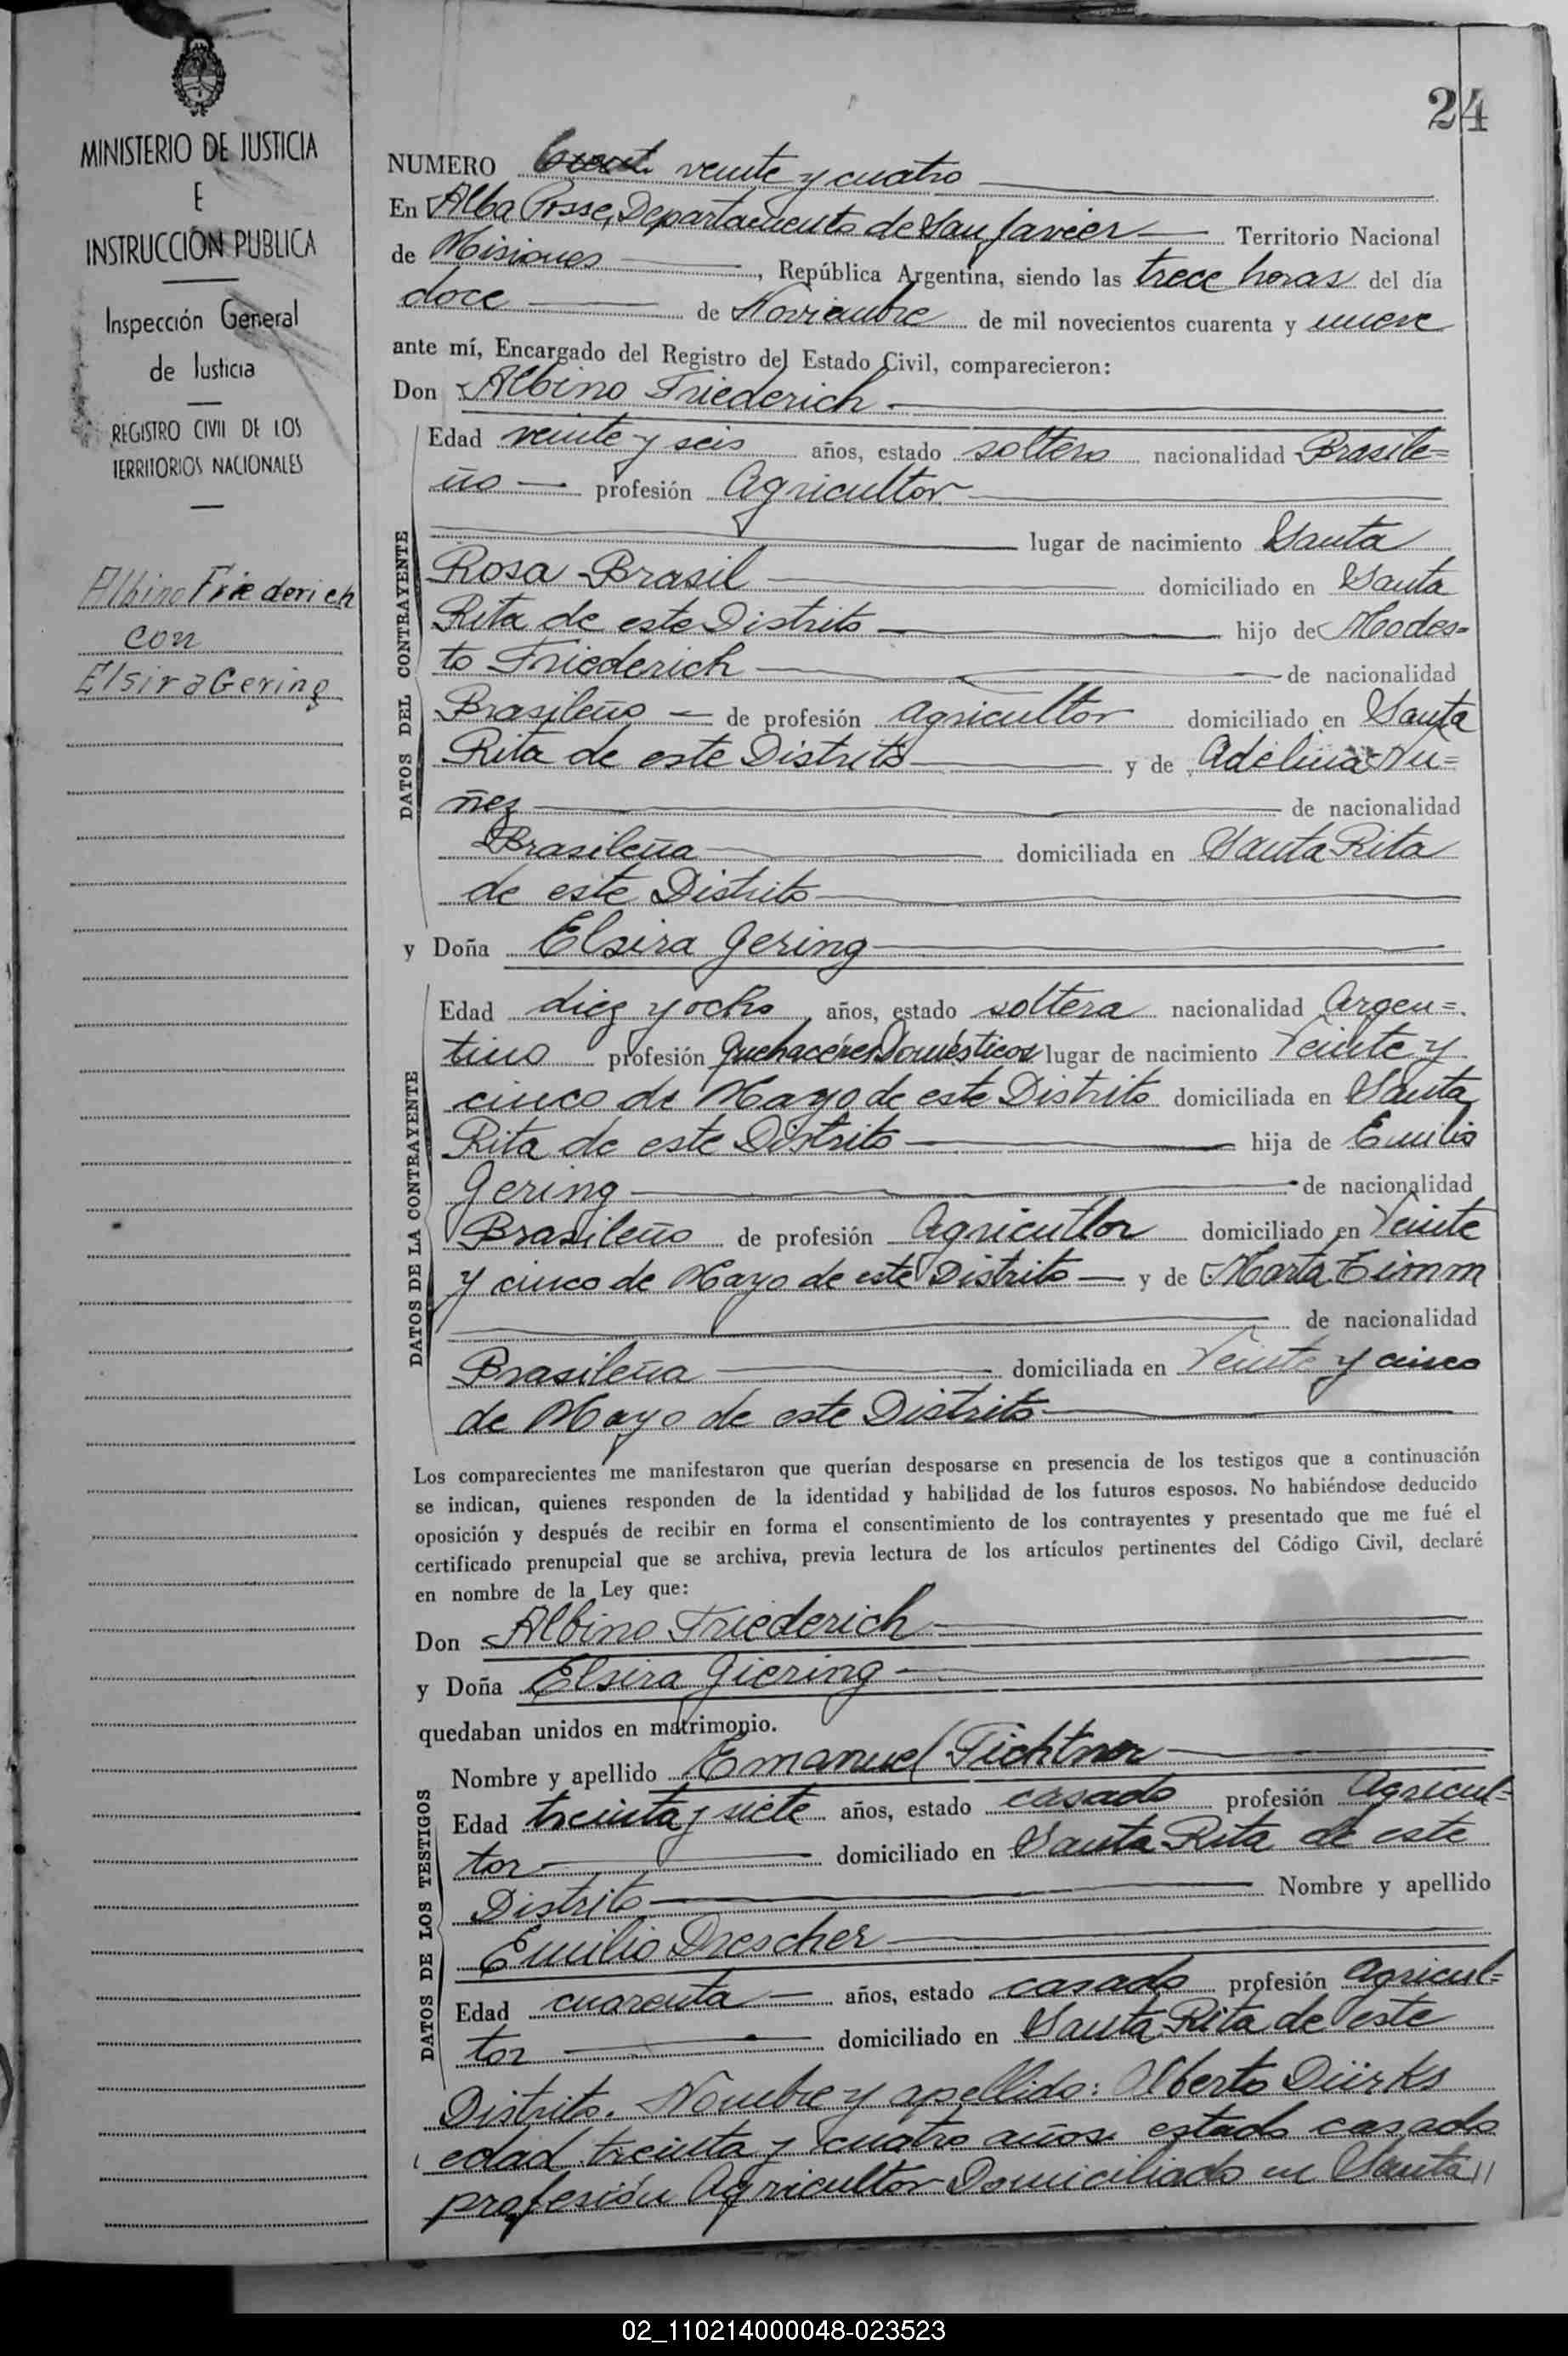 24
MINISTERIO DE JUSTICIA
E
INSTRUCCIÓN PUBLICA
Inspección General
de Justicia
REGISTRO CIVIL DE LOS
TERRITORIOS NACIONALES
Albino Friederich
con
Elsira Gering
NUMERO veinte y cuatro
En Alba Posse, Departamento de San Javier Territorio Nacional
de Misiones, República Argentina, siendo las trece horas del día
doce de Noviembre de mil novecientos cuarenta y nueve
ante mí, Encargado del Registro del Estado Civil, comparecieron:
Don Albino Friederich
DATOS DEL CONTRAYENTE
Edad veinte y seis años, estado soltero nacionalidad Brasile=
ño profesión Agricultor
lugar de nacimiento Santa
Rosa Brasil domiciliado en Santa
Rita de este Distrito hijo de Modes=
to Friederich de nacionalidad
Brasileño de profesión agricultor domiciliado en Santa
Rita de este Distrito y de Adelina Nu=
ñez de nacionalidad
Brasileña domiciliada en Santa Rita
de este Distrito
y Doña Elsira Gering
DATOS DE LA CONTRAYENTE
Edad diez y ocho años, estado soltera nacionalidad Argen=
tino profesión Quehaceres Domésticos lugar de nacimiento Veinte y
cinco de Mayo de este Distrito domiciliada en Santa
Rita de este Distrito hija de Emilio
Gering de nacionalidad
Brasileño de profesión Agricultor domiciliado en Veinte
y cinco de Mayo de este Distrito y de Marta Timm
de nacionalidad
Brasileña domiciliada en Veinte y cinco
de Mayo de este Distrito
Los comparecientes me manifestaron que querían desposarse en presencia de los testigos que a continuación
se indican, quienes responden de la identidad y habilidad de los futuros esposos. No habiéndose deducido
oposición y después de recibir en forma el consentimiento de los contrayentes y presentado que me fué el
certificado prenupcial que se archiva, previa lectura de los artículos pertinentes del Código Civil, declaré
en nombre de la Ley que:
Don Albino Friederich
y Doña Elsira Giering
quedaban unidos en matrimonio.
DATOS DE LOS TESTIGOS
Nombre y apellido Emanuel Fichtner
Edad treinta y siete años, estado casado profesión Agricul=
tor domiciliado en Santa Rita de este
Distrito Nombre y apellido
Emilio Drescher
Edad cuarenta años, estado casado profesión Agricul=
tor domiciliado en Santa Rita de este
Distrito. Nombre y apellido: Alberto Dürks
edad treinta y cuatro años estado casado
profesión Agricultor Domiciliado en Santa //
02_110214000048-023523